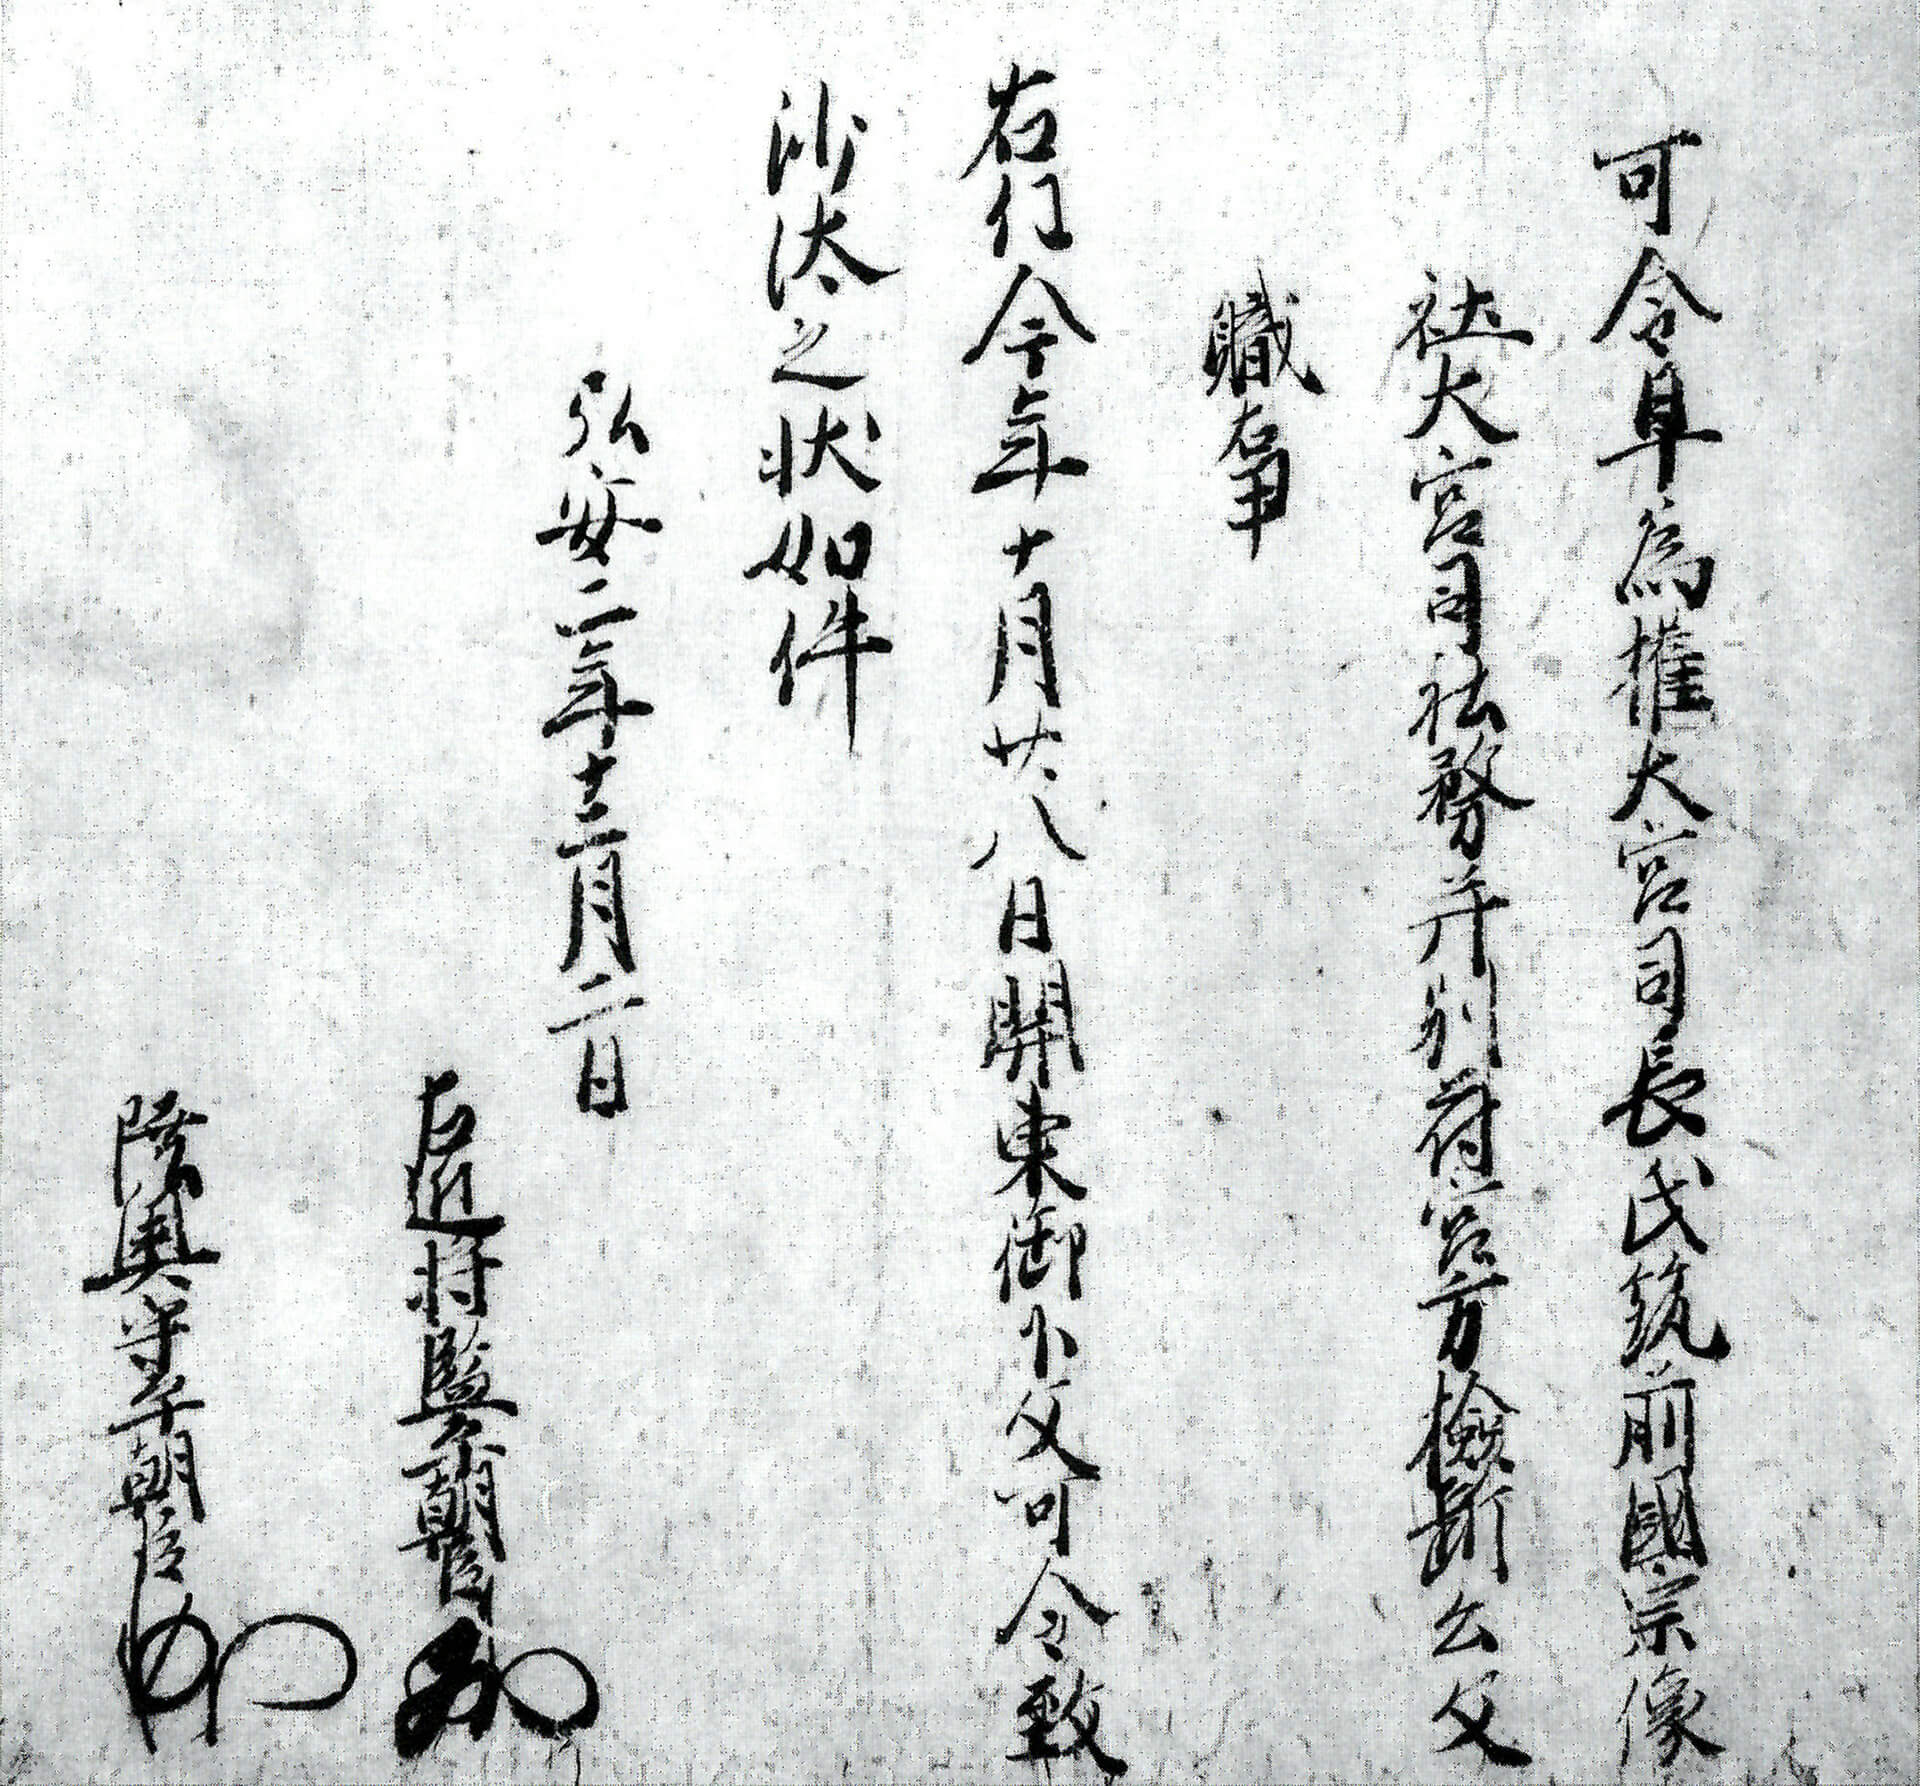 可令早為權大宮司長氏筑前國宗像
社大宮司社務并別符宮方檢斷公文
職事
右任今年十月廿八日關東御下文可令致
沙汰之状如件
弘安二年十二月二日
左近将監平朝臣
陸奥守平朝臣